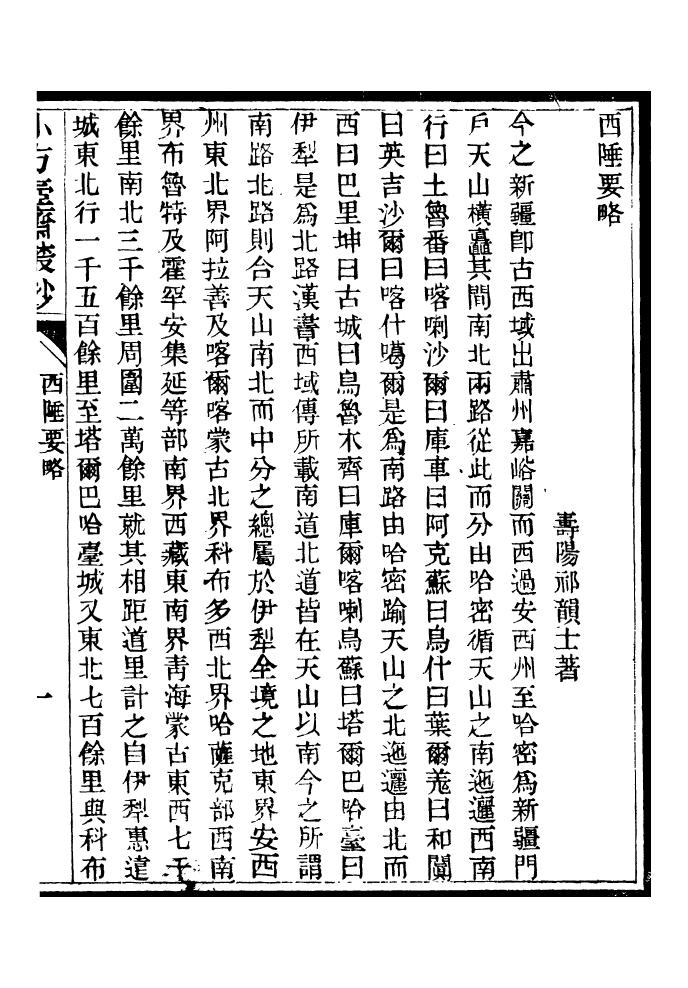 西陲要略
壽陽祁韻士著
今之新疆卽古西域出肅州嘉峪關而西過安西州至哈密爲新疆門
戶天山橫矗其間南北兩路從此而分由哈密循天山之南迤邐西南
行曰土魯番曰喀喇沙爾曰庫車曰阿克蘇曰烏什曰葉爾羌曰和闐
曰英吉沙爾曰喀什噶爾是爲南路由哈密踰天山之北迤邐由北而
西曰巴里坤曰古城曰烏魯木齊曰庫爾喀喇烏蘇曰塔爾巴哈臺曰
伊犁是爲北路漢書西域傳所載南道北道皆在天山以南今之所謂
南路北路則合天山南北而中分之總屬於伊犁全境之地東界安西
州東北界阿拉善及喀爾喀蒙古北界科布多西北界哈薩克部西南
界布魯特及霍罕安集延等部南界西藏東南界靑海蒙古東西七千
餘里南北三千餘里周圍二萬餘里就其相距道里計之自伊犁惠遠
城東北行一千五百餘里至塔爾巴哈臺城又東北七百餘里與科布
小方壺齋叢鈔
西陲要略
一